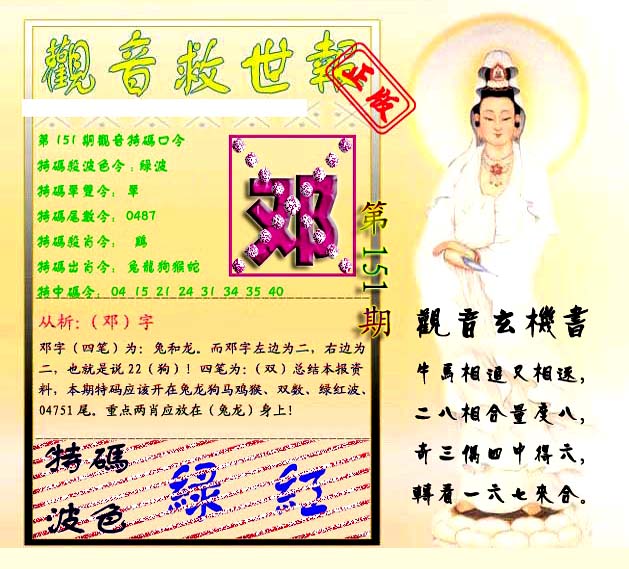 觀音救世報
正版
第151期觀音特碼口令
特碼殺波色令：綠波
特碼單雙令： 單
特碼尾數令： 0487
特碼殺肖令： 鷄
特碼出肖令： 兔龍狗猴蛇
特中碼令： 04 15 21 24 31 34 35 40
邓
第151期
从析:（邓）字
邓字（四笔）为：兔和龙。而邓字左边为二，右边为
二，也就是说22（狗）！四笔为：（双）总结本报资
料，本期特码应该开在兔龙狗马鸡猴、双数、绿红波、
04751尾。重点两肖应放在（兔龙）身上！
特碼
波色
綠 紅
觀音玄機書
牛馬相追又相逐，
二八相合量度八，
奇三偶四中得六，
轉看一六七來合。